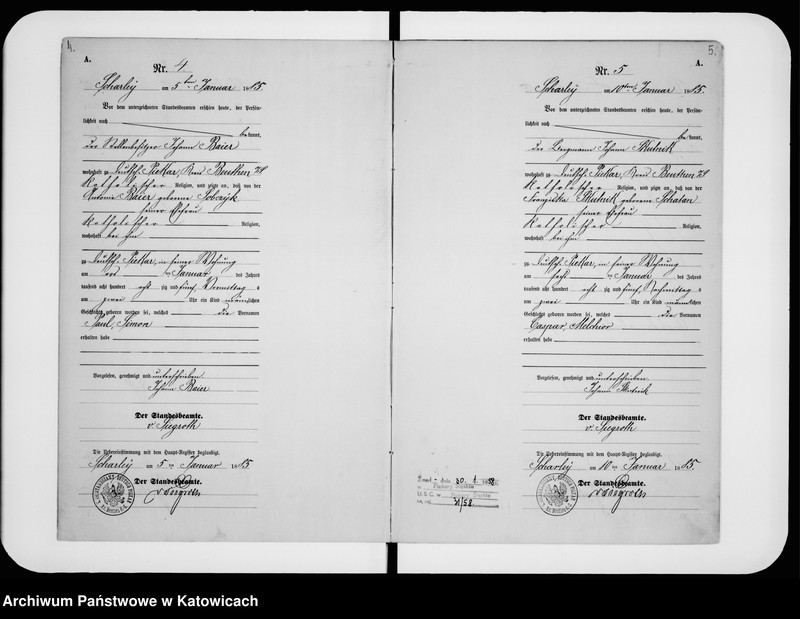 4.
A.
Nr. 4
Scharley am 5ten Januar 1885
Vor dem unterzeichneten Standesbeamten erschien heute, der Persön-
lichkeit nach
bekannt,
der Johann Baier
wohnhaft zu Deutsch Piekar, Kreis Beuthen O/S
katholischer Religion, und zeigte an, daß von der
Antonie Baier geborene
seiner Ehefrau
katholischer Religion,
wohnhaft bei ihm
zu Deutsch Piekar, in seiner Wohnung
am Januar des Jahres
tausend acht hundert acht zig und fünf, Vormittag s
um zwei Uhr ein Kind männlichen
Geschlechts geboren worden sei, welches die Vornamen
Paul, Simon
erhalten habe
Vorgelesen, genehmigt und unterschrieben
Johann Baier
Der Standesbeamte.
v. Siegroth
Die Uebereinstimmung mit dem Haupt-Register beglaubigt.
Scharley am 5ten Januar 1885
Der Standesbeamte.
v. Siegroth
5.
A.
Nr. 5
Scharley am 10ten Januar 1885.
Vor dem unterzeichneten Standesbeamten erschien heute, der Persön-
lichkeit nach
bekannt,
der Bergmann Johann Skutnik
wohnhaft zu Deutsch Piekar, Kreis Beuthen O/S
katholischer Religion, und zeigte an, daß von der
Franziska Skutnik geborene
seiner Ehefrau
katholischer Religion,
wohnhaft bei ihm
zu Deutsch Piekar, in seiner Wohnung
am sechs ten Januar des Jahres
tausend acht hundert acht zig und fünf, Nachmittag s
um zwei Uhr ein Kind männlichen
Geschlechts geboren worden sei, welches die Vornamen
Caspar, Melchior
erhalten habe
Vorgelesen, genehmigt und unterschrieben
Johann Skutnik
Der Standesbeamte.
v. Siegroth
Die Uebereinstimmung mit dem Haupt-Register beglaubigt.
Scharley am 10ten Januar 1885.
Der Standesbeamte.
v. Siegroth
U.S.C. w
31/58
Archiwum Państwowe w Katowicach